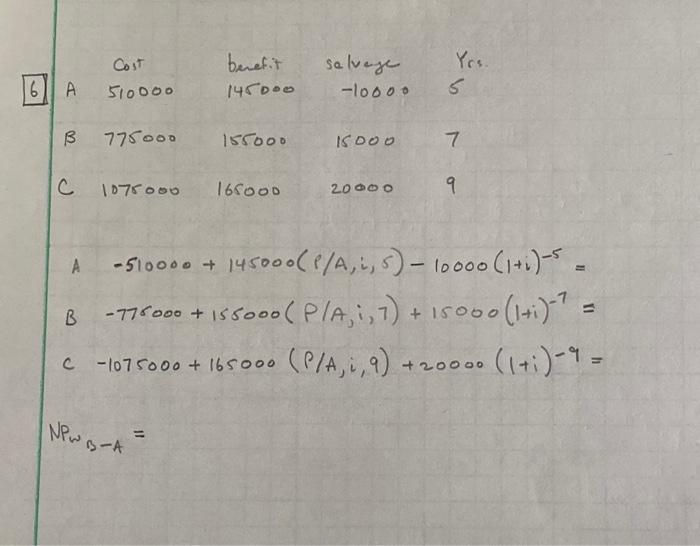 Cost benefit salvage Yrs.
6 A 510000 145000 -10000 5
B 775000 155000 15000 7
C 1075000 165000 20000 9
A -510000 + 145000(P/A,i,5) - 10000(1+i)^-5 =
B -775000 + 155000(P/A,i,7) + 15000(1+i)^-7 =
C -1075000 + 165000(P/A,i,9) + 20000(1+i)^-9 =
NPW B-A =